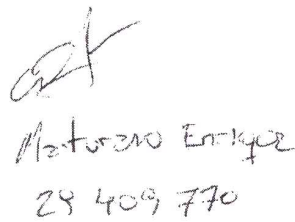 Maturano Enrique
29 409 770